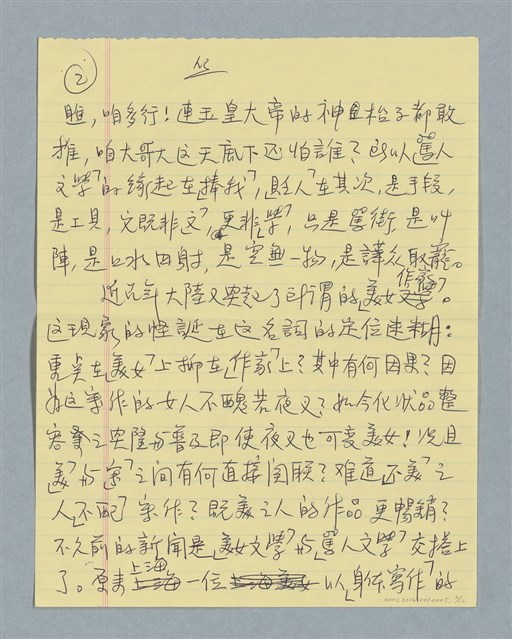 ②
瞧,咱多行!連玉皇大帝的神主枱子都敢
推,咱大哥大这天底下还怕誰?所以「罵人
文學」的緣起在「捧我」,「貶人」在其次,是手段,
是工具,文既非「文」,更非「學」,只是罵街,是叫
陣,是口水四射,是空無一物,是譁众取寵。
近几年大陸又興起了所謂的「美女作家」。
这現象的怪誕在这名詞的定位迷糊:
重点在「美女」上抑在「作家」上?其中有何因果?因
为这寫作的女人不醜若夜叉?如今化妝品整
容業之興隆与普及即使夜叉也可变美女!況且
「美」与「家」之间有何直接関联?难道「不美」之
人「不配」寫作?既美之人的作品更暢銷?
不久前的新闻是「美女文學」与「罵人文學」交搭上
了。原来上海一位以「身体寫作」的